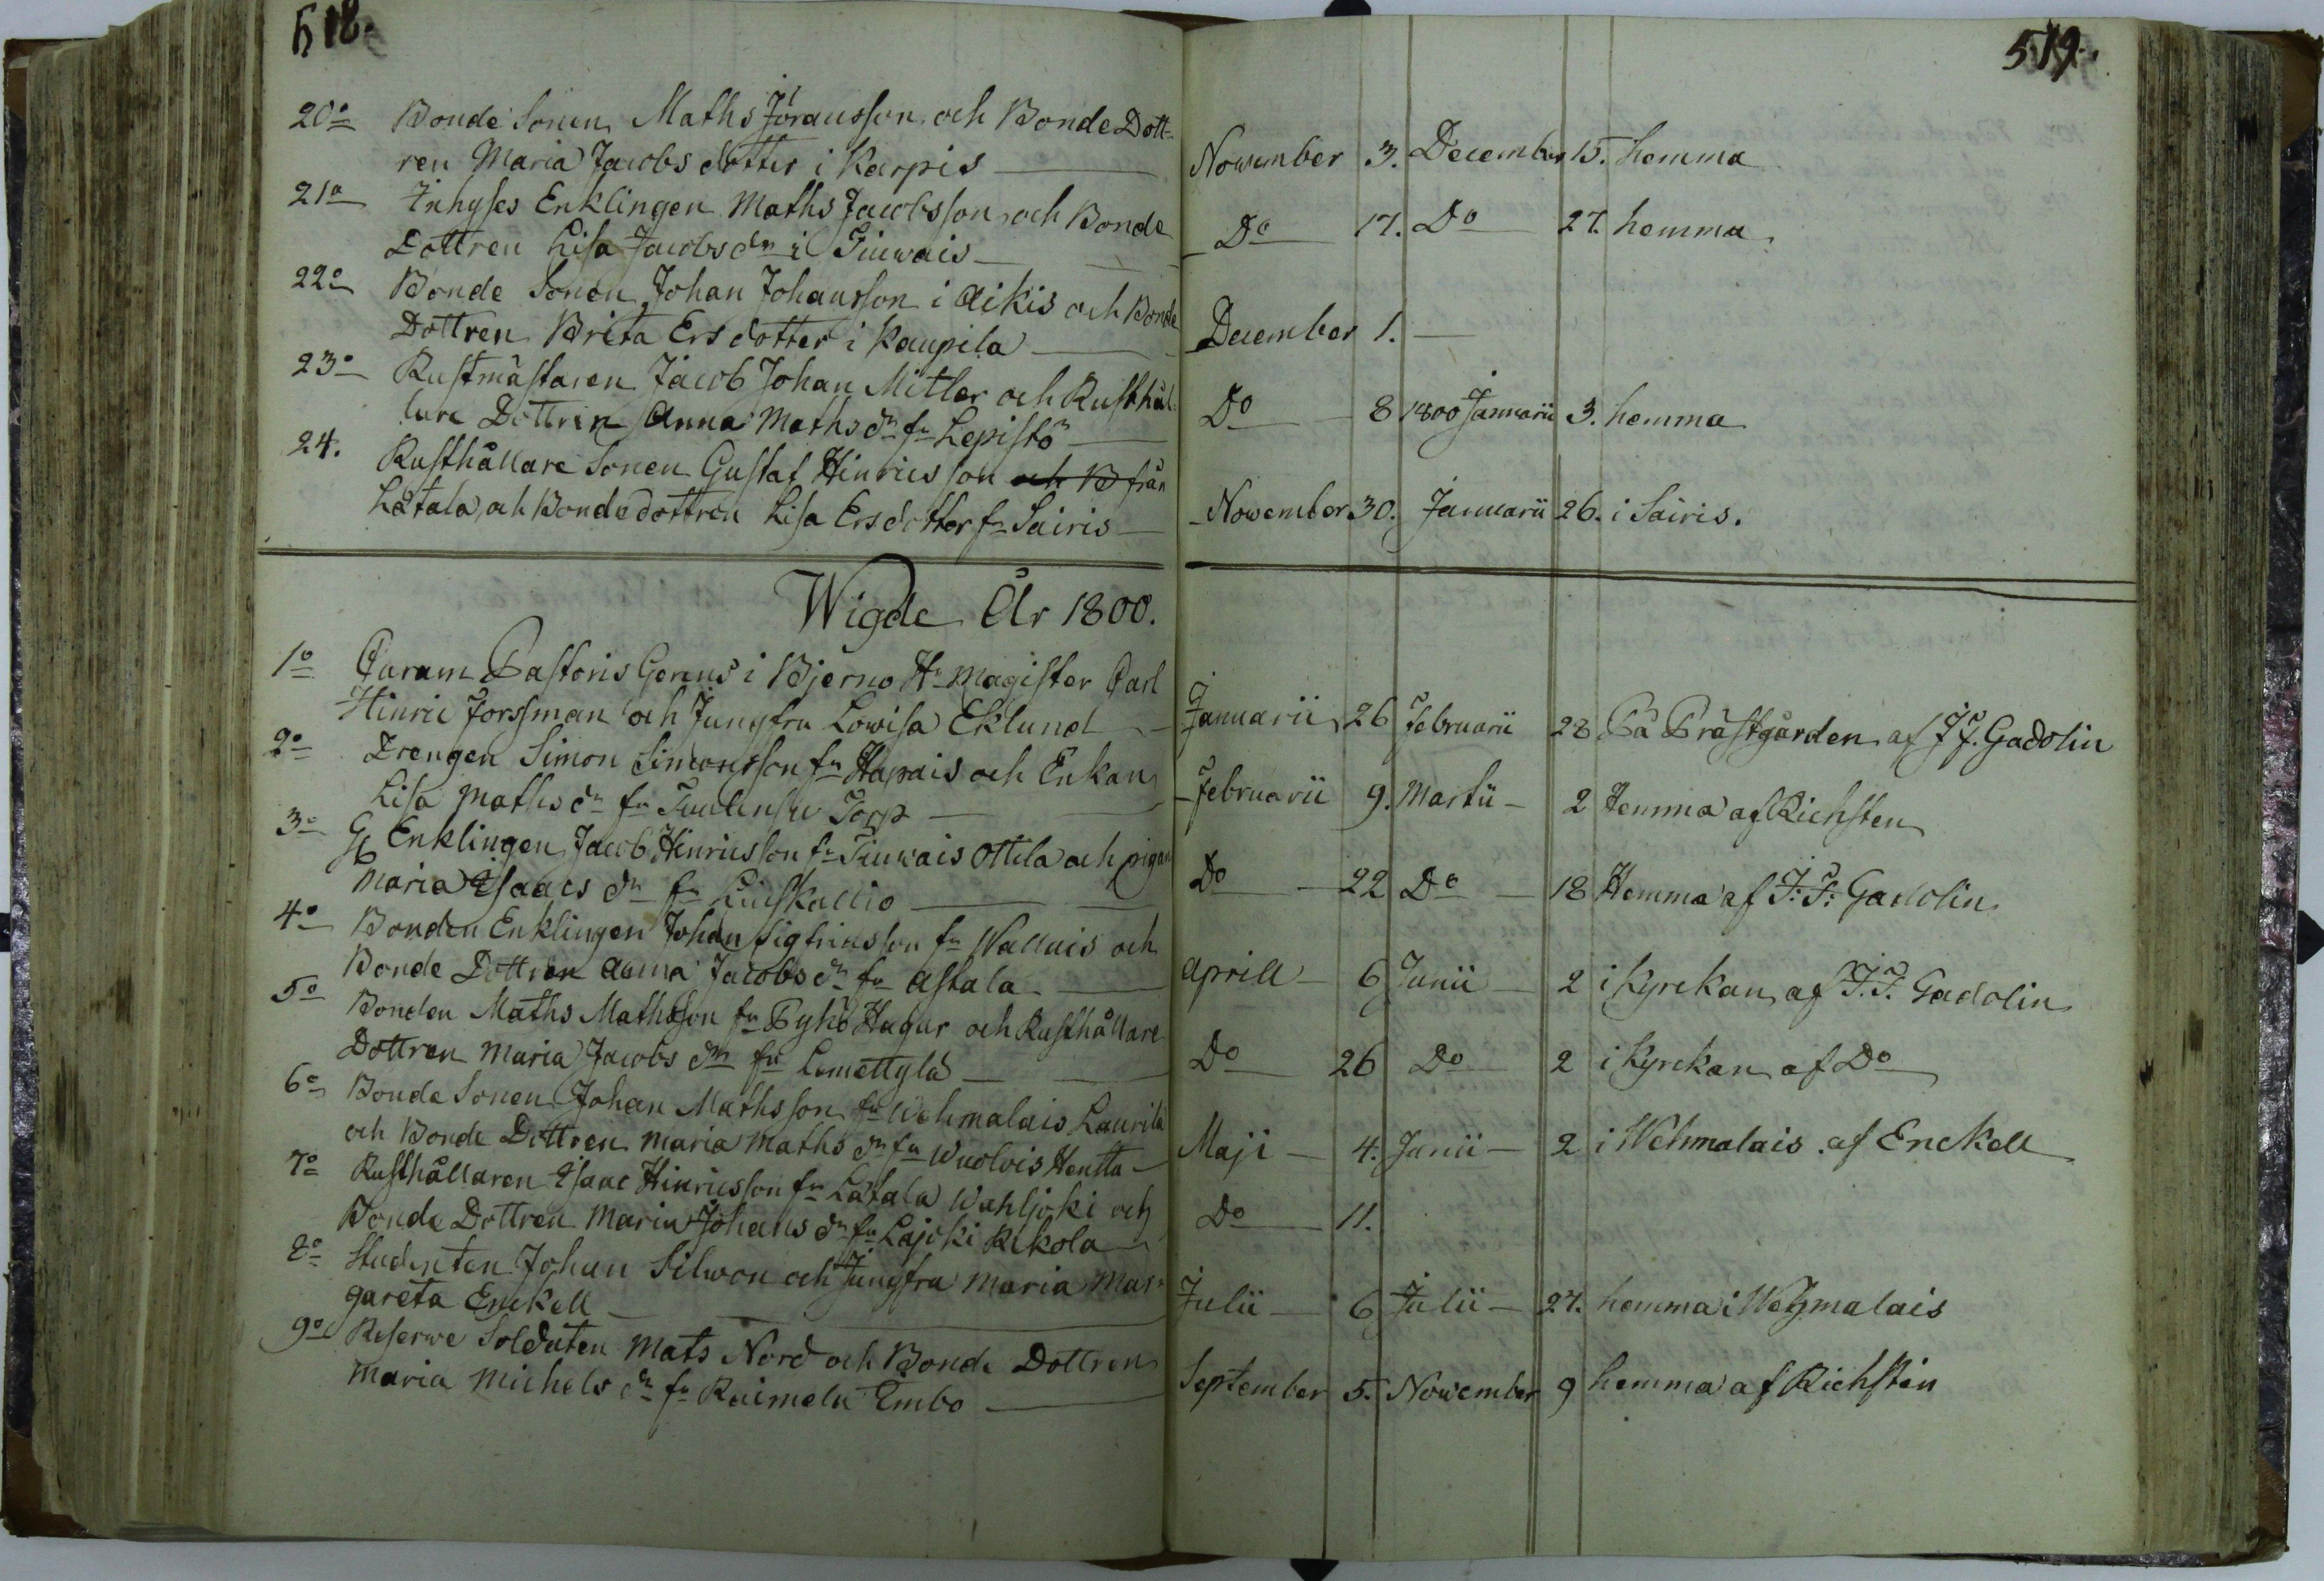 518.
20o Bonde Sonen Maths Jöransson och Bonde Dott-
ren Maria Jacobs dotter i Karpis
21o Inhyses Enklingen Maths Jacobsson och Bonde
Dottren Lisa Jacobs dr i Tiuwais
22o Bonde Sonen Johan Johansson i Aikis och Bonde
Dottren Brita Ersdotter i Kaupila
23o Rustmästaren Jacob Johan Mitler och Rusthål-
lare Dottren Anna Maths dr fr Lepistö
24. Rusthållare Sonen Gustaf Hinricsson och B från
Latala, och Bondedottren Lisa Ersdotter fr Sairis
Wigde År 1800.
1o Curam Pastoris Gerens i Bjerno Hr Magister Carl
Hinric Forssman och Jungfru Lowisa Eklund
2o Drengen Simon Simonsson fr Hapais och Enkan
Lisa Maths dr fr Torp
3o Enklingen Jacob Hinricsson fr Tiuwais Ottila och pigan
Maria Isaacs dr fr
4o Bonden Enklingen Johan Sigfridsson fr Wallais och
Bonde Dottren Anna Jacobs dr fr Astala
5o Bonden Maths Mathsson fr Pyhö Hagur och Rusthållare
Dottren Maria Jacobs dr fr Lemettylä
6o Bonde Sonen Johan Mathsson fr Wehmalais Laurila
och Bonde Dottren Maria Maths dr fr Wuolois Hentta
7o Rusthållaren Isaac Hinricsson fr Latala Wahljoki och
Bonde Dottren Maria Johans dr fr Lajoki Rekola
8o Studenten Johan Silwon och Jungfru Maria Mar-
gareta Enckell
9o Reserwe Soldaten Mats Nord och Bonde Dottren
Maria Michels dr fr Raimela Embo
519.
Nowember 3. December 15. hemma
Do 17. Do 27. hemma
December 1.
Do 8 1800 Januarii 3. hemma
Nowember 30. Januarii 26. i Sairis.
Januarii 26 Februarii 28 På Prästgården af J. F. Gadolin
Februarii 9. Martii 2 Hemma af Richsten
Do 22 Do 18 Hemma af J: F: Gadolin
Aprill 6 Junii 2 i Kyrekan af J. F. Gadolin
Do 26 Do 2 i Kyrekan af Do
Maji 4. Junii 2 i Wehmalais af Enckell
Do 11.
Julii 6 Julii 27. hemma i Wehmalais
September 5. Nowember 9 hemma af Richsten